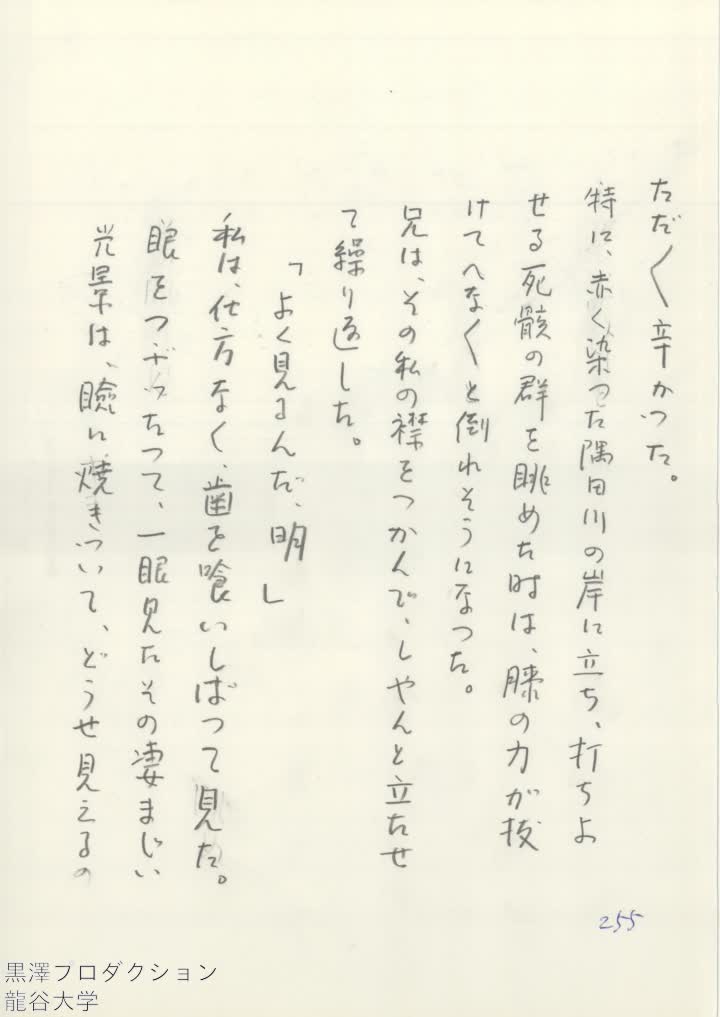 ただ〱辛かつた。
特に、赤く染つた隅田川の岸に立ち、打ちよ
せる死骸の群を眺めた時は、膝の力が抜
けてへな〱と倒れそうになつた。
兄は、その私の襟をつかんで、しやんと立たせ
て繰り返した。
「よく見るんだ、明」
私は、仕方なく、歯を喰いしばつて見た。
眼をつぶつたつて、一眼見たその凄まじい
光景は、瞼に焼きついて、どうせ見えるの
255
黒澤プロダクション
龍谷大学